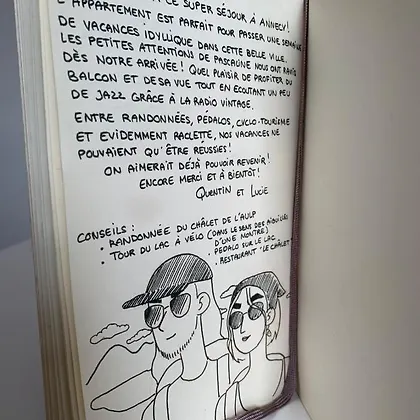 CE SUPER SÉJOUR À ANNECY!
L'APPARTEMENT EST PARFAIT POUR PASSER UNE SEMAINE
DE VACANCES IDYLLIQUE DANS CETTE BELLE VILLE.
LES PETITES ATTENTIONS DE PASCALINE NOUS ONT RAVIS
DÈS NOTRE ARRIVÉE! QUEL PLAISIR DE PROFITER DU
BALCON ET DE SA VUE TOUT EN ECOUTANT UN PEU
DE JAZZ GRÂCE À LA RADIO VINTAGE.
ENTRE RANDONNÉES, PÉDALOS, CYCLO-TOURISME
ET EVIDEMMENT RACLETTE, NOS VACANCES NE
POUVAIENT QU'ÊTRE REUSSIES!
ON AIMERAIT DÉJÀ POUVOIR REVENIR!
ENCORE MERCI ET À BIENTÔT!
QUENTIN ET LUCIE
CONSEILS:
• RANDONNÉE DU CHÂLET DE L'AULP
• TOUR DU LAC À VÉLO (DANS LE SENS DES AIGUILLES
D'UNE MONTRE)
• PEDALO SUR LE LAC
• RESTAURANT "LE CHÂLET"